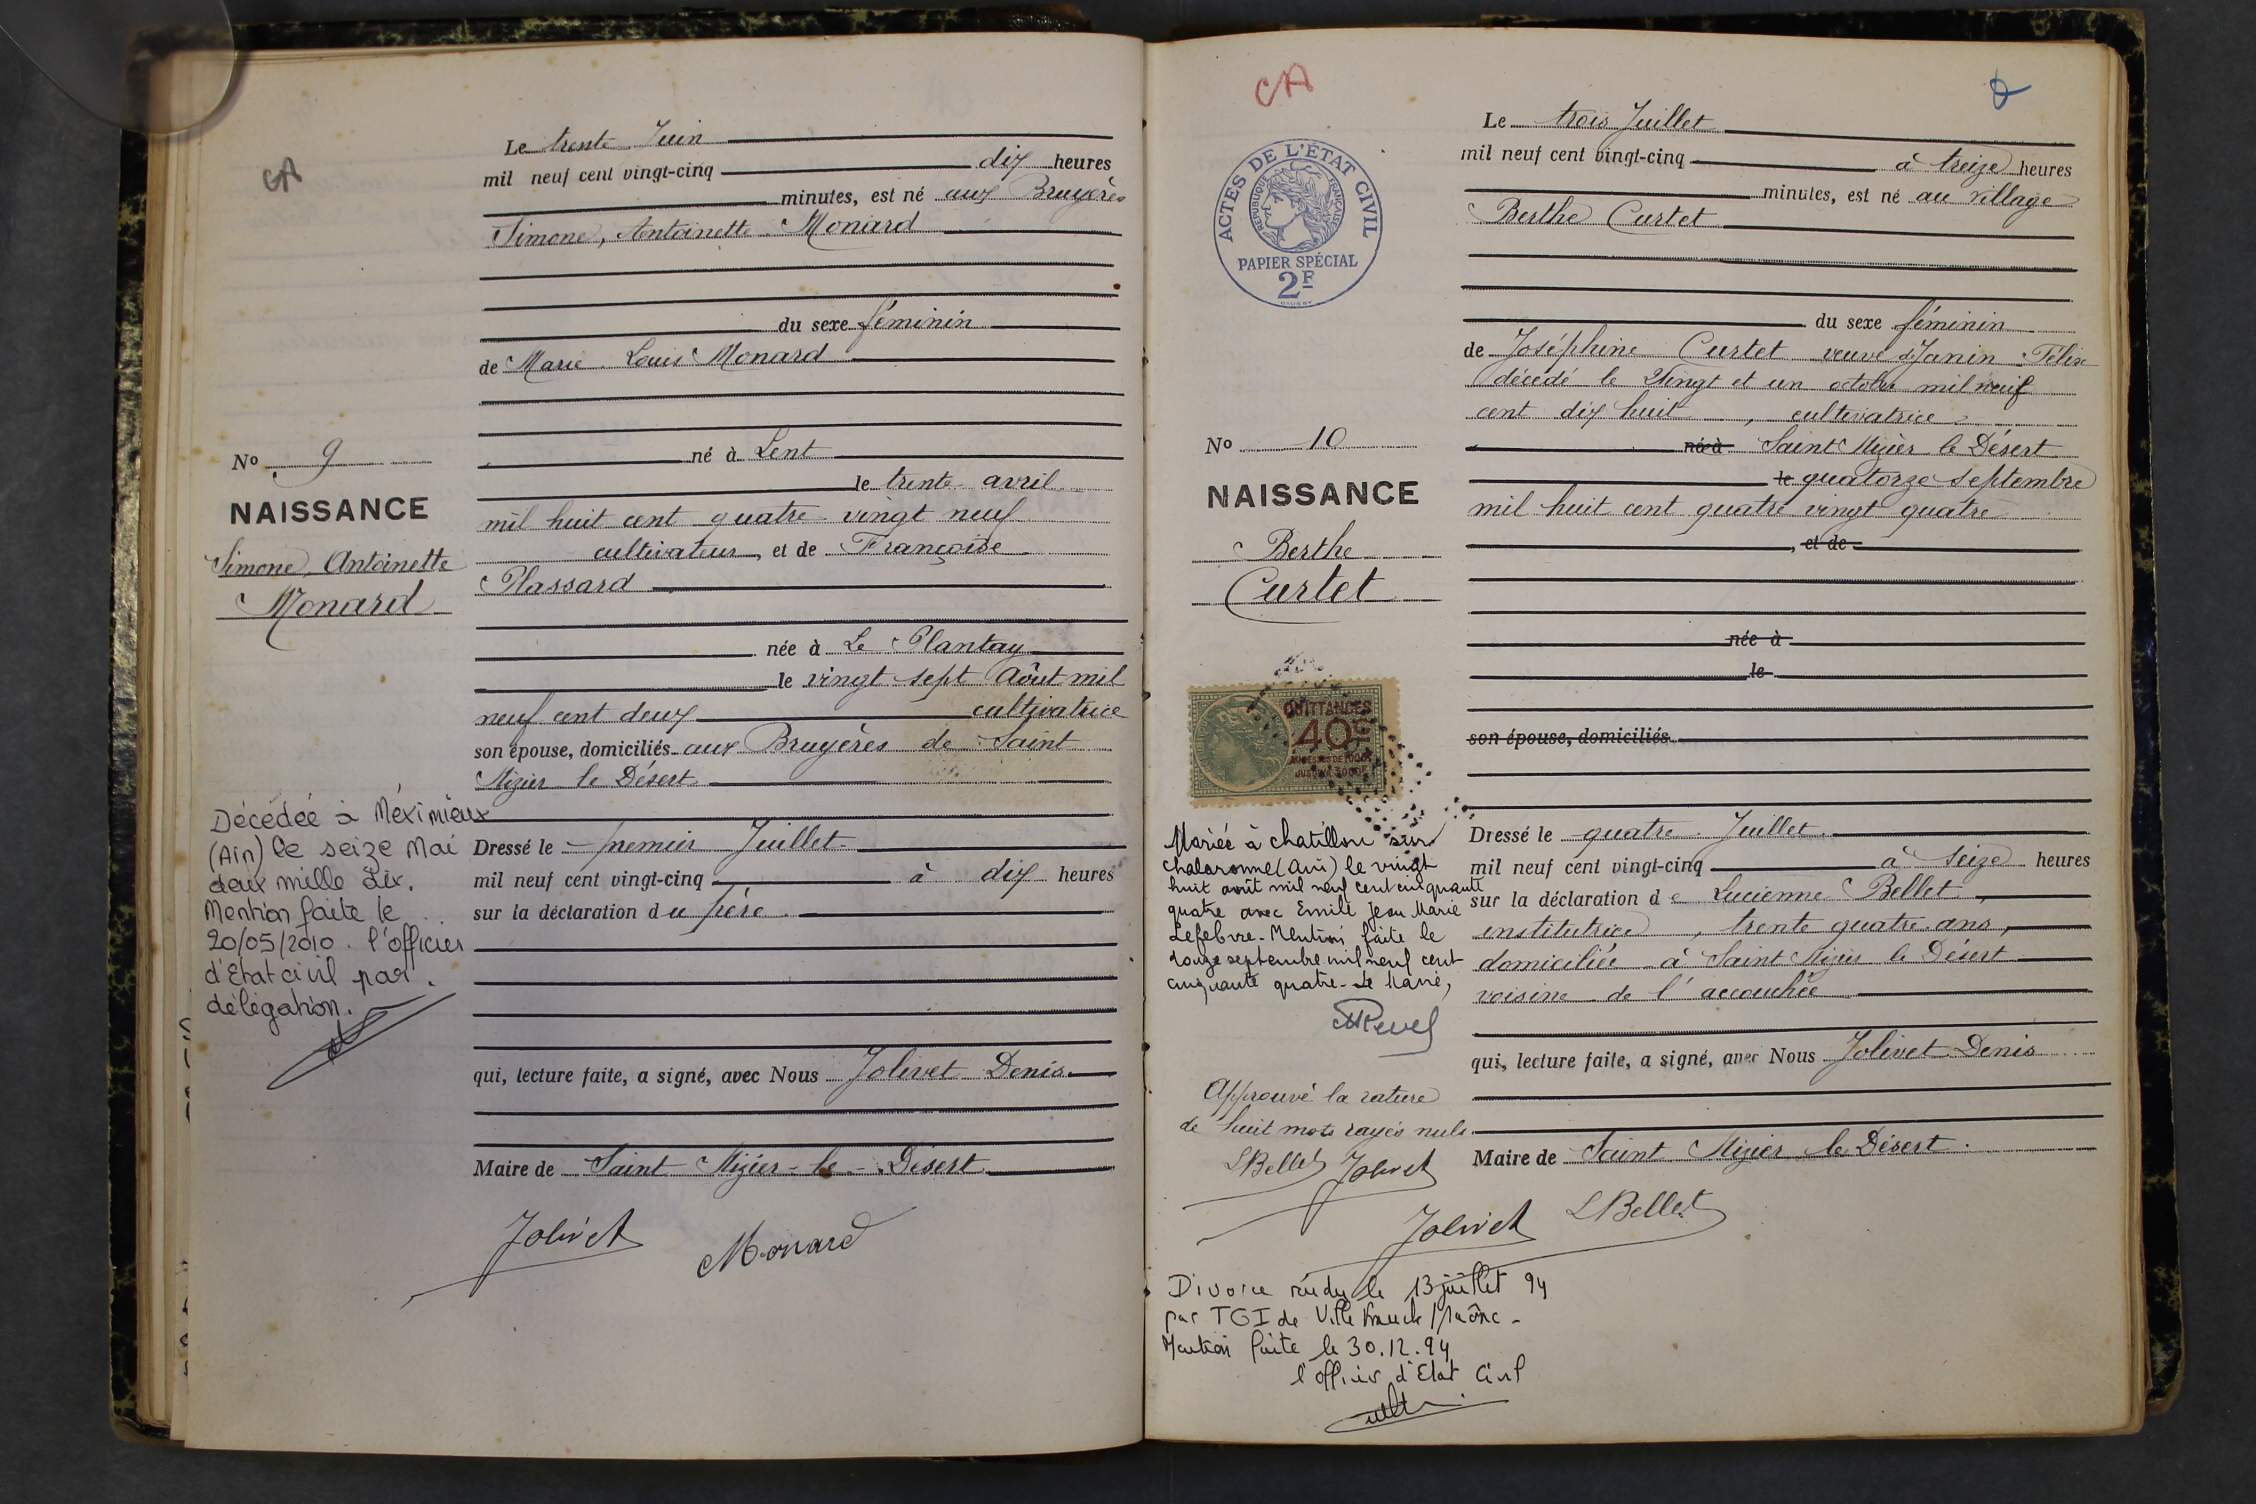 CA
Le trente Juin
mil neuf cent vingt-cinq dix heures
minutes, est né aux Bruyères
Simone, Antoinette Monard
du sexe féminin
de Marie Louis Monard
né à Lent
le trente avril
mil huit cent quatre vingt neuf
cultivateur, et de Françoise
Plassard
née à Le Plantay
le vingt sept Août mil
neuf cent deux cultivatrice
son épouse, domiciliés aux Bruyères de Saint
Nizier le Désert
Dressé le premier Juillet
mil neuf cent vingt-cinq à dix heures
sur la déclaration du père
qui, lecture faite, a signé, avec Nous Jolivet Denis
Maire de Saint Nizier-le-Désert
Jolivet Monard
No 9
NAISSANCE
Simone, Antoinette
Monard
Décédée à Méximieux
(Ain) le seize Mai
deux mille dix.
Mention faite le
20/05/2010. l'officier
d'Etat civil par
délégation.
CA
ACTES DE L'ÉTAT CIVIL
RÉPUBLIQUE FRANÇAISE
PAPIER SPÉCIAL
2F
Le trois Juillet
mil neuf cent vingt-cinq à treize heures
minutes, est né au village
Berthe Curtet
du sexe féminin
de Joséphine Curtet veuve d'Janin Félix
décédé le Vingt et un octobre mil neuf
cent dix huit, cultivatrice
née à Saint Nizier le Désert
le quatorze septembre
mil huit cent quatre vingt quatre
, et de
née à
le
son épouse, domiciliés
Dressé le quatre Juillet
mil neuf cent vingt-cinq à seize heures
sur la déclaration de Lucienne Bellet,
institutrice, trente quatre ans,
domiciliée à Saint Nizier le Désert
voisine de l'accouchée
qui, lecture faite, a signé, avec Nous Jolivet Denis
Maire de Saint Nizier le Désert.
Jolivet LBellet
No 10
NAISSANCE
Berthe
Curtet
QUITTANCES
40c
Mariée à chatillon sur
chalaronne (Ain) le vingt
huit août mil neuf cent cinquante
quatre avec Emile Jean Marie
Lefebvre. Mention faite le
douze septembre mil neuf cent
cinquante quatre. Le Maire,
Approuvé la rature
de huit mots rayés nuls
LBellet Jolivet
Divorce rendu le 13 juillet 94
par TGI de Villefranche/Saône -
Mention faite le 30.12.94
l'officier d'Etat Civil